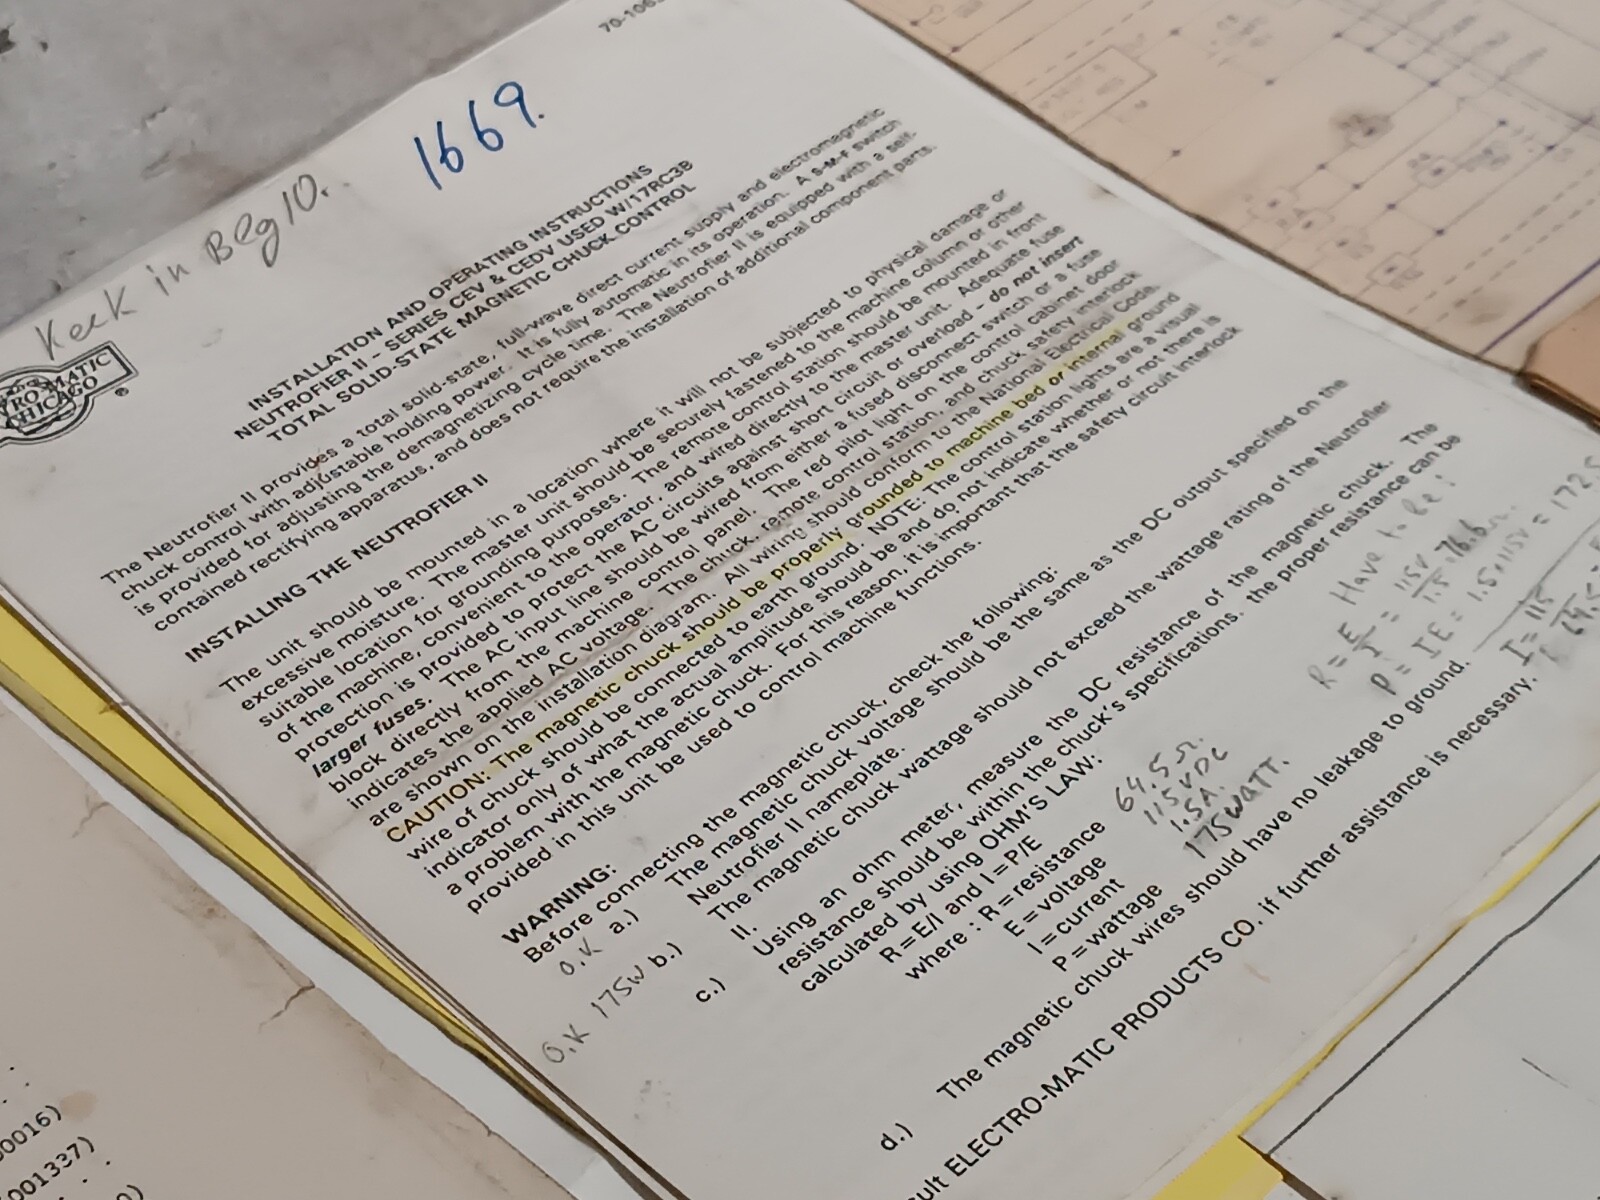 70-106
1669.
Keek in Blg 10.
MATIC
CHICAGO
®
INSTALLATION AND OPERATING INSTRUCTIONS
NEUTROFIER II – SERIES CEV & CEDV USED W/17RC3B
TOTAL SOLID-STATE MAGNETIC CHUCK CONTROL
The Neutrofier II provides a total solid-state, full-wave direct current supply and electromagnetic
chuck control with adjustable holding power. It is fully automatic in its operation. A S-M-F switch
is provided for adjusting the demagnetizing cycle time. The Neutrofier II is equipped with a self-
contained rectifying apparatus, and does not require the installation of additional component parts.
INSTALLING THE NEUTROFIER II
The unit should be mounted in a location where it will not be subjected to physical damage or
excessive moisture. The master unit should be securely fastened to the machine column or other
suitable location for grounding purposes. The remote control station should be mounted in front
of the machine, convenient to the operator, and wired directly to the master unit. Adequate fuse
protection is provided to protect the AC circuits against short circuit or overload – do not insert
larger fuses. The AC input line should be wired from either a fused disconnect switch or a fuse
block directly from the machine control panel. The red pilot light on the control cabinet door
indicates the applied AC voltage. The chuck, remote control station, and chuck safety interlock
are shown on the installation diagram. All wiring should conform to the National Electrical Code.
CAUTION: The magnetic chuck should be properly grounded to machine bed or internal ground
wire of chuck should be connected to earth ground. NOTE: The control station lights are a visual
indicator only of what the actual amplitude should be and do not indicate whether or not there is
a problem with the magnetic chuck. For this reason, it is important that the safety circuit interlock
provided in this unit be used to control machine functions.
WARNING:
Before connecting the magnetic chuck, check the following:
O.K a.) The magnetic chuck voltage should be the same as the DC output specified on the
Neutrofier II nameplate.
O.K 175W b.) The magnetic chuck wattage should not exceed the wattage rating of the Neutrofier
II.
c.) Using an ohm meter, measure the DC resistance of the magnetic chuck. The
resistance should be within the chuck's specifications. the proper resistance can be
calculated by using OHM'S LAW:
R = E/I and I = P/E
where : R = resistance 64.5 Ω.
E = voltage 115 VDC
I = current 1.5A.
P = wattage 175WATT.
Have to be:
R = E/I = 115V/1.5 = 76.6
P = IE = 1.5 x 115V = 172.5
I = 115/64.5
d.) The magnetic chuck wires should have no leakage to ground.
ult ELECTRO-MATIC PRODUCTS CO. if further assistance is necessary.
00016)
001337)
0)